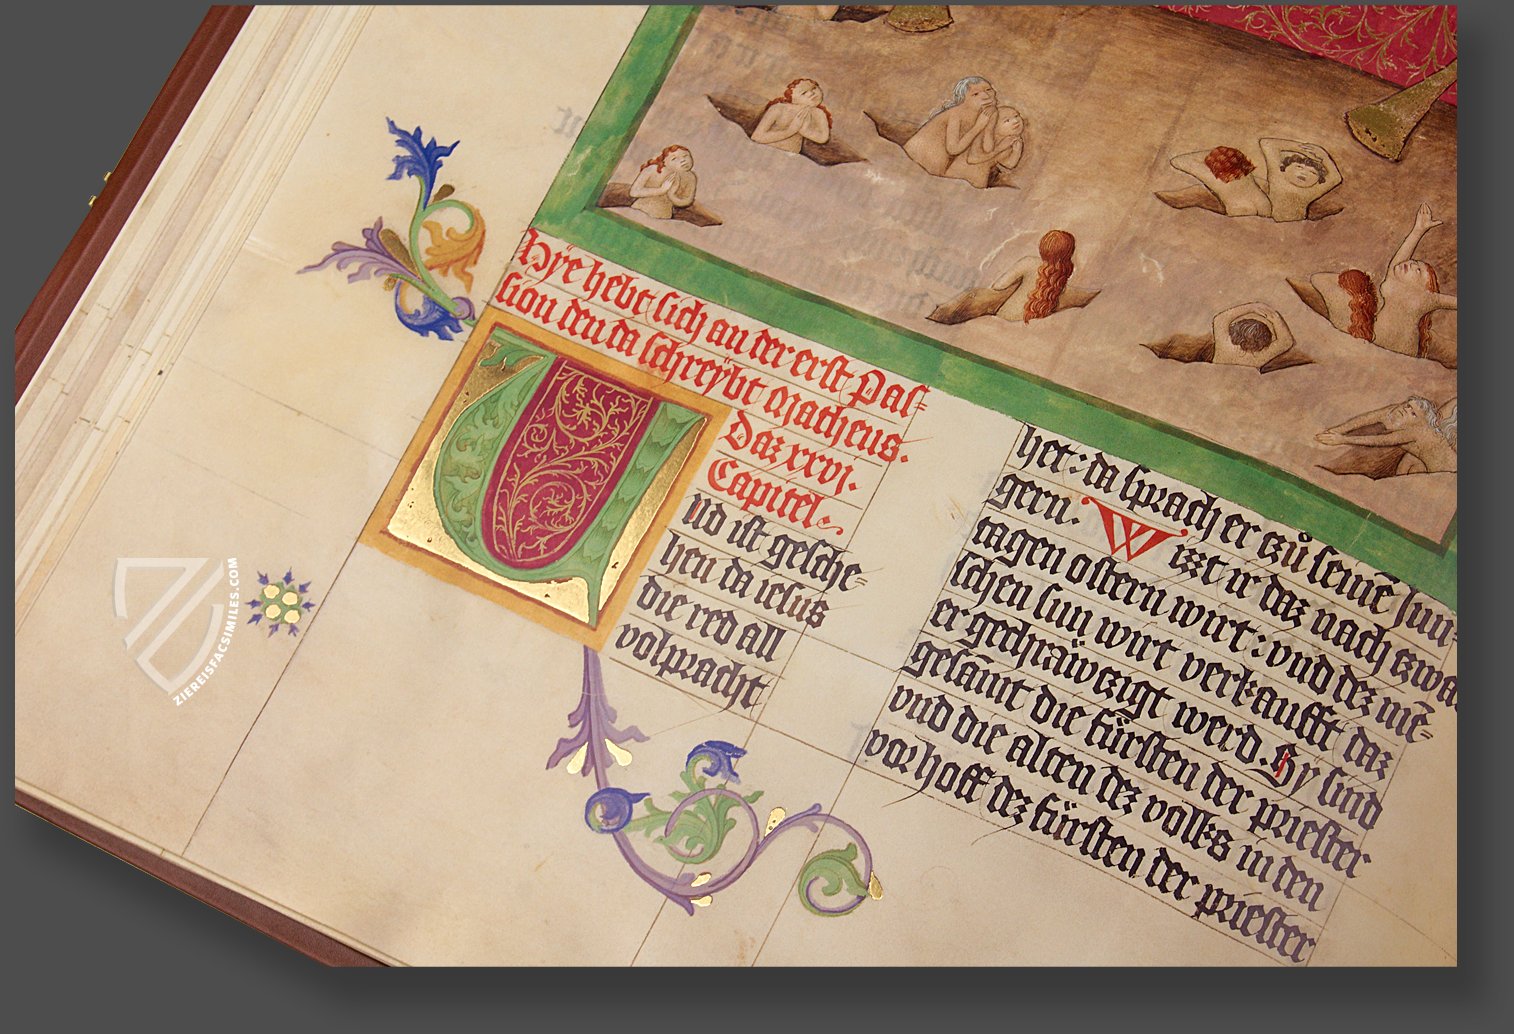 Hÿe hebt sich an der erst Pas=
sion den da schreÿbt Matheus.
Daz xxvi.
Capitel.
Und ist gesche=
hen da iesus
die red all
volpracht
het: da sprach er czů seinē Jun=
gern. Wizt ir daz nach czwai
tagen ostern wirt: vnd dez mē=
schen sun wirt verkaufft daz
er gechraüwczigt werd. Sy sind
gesāmt die fürsten der priester
vnd die alten dez volks in den
vorhoff dez fürsten der priester
ZIEREISFACSIMILES.COM